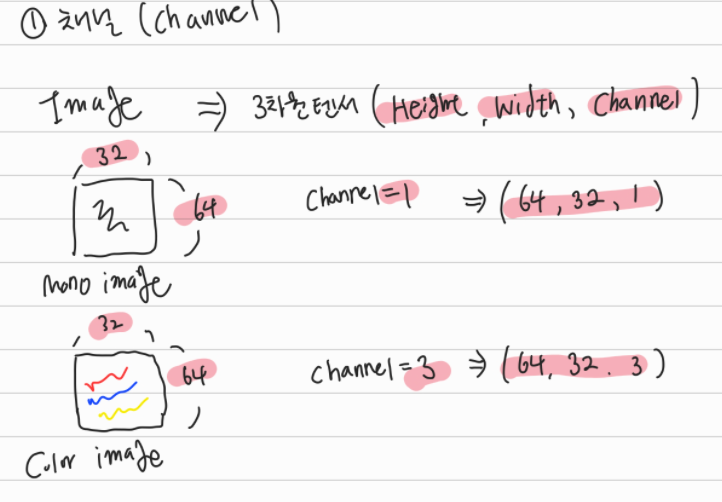 ① 채널 (channel)
Image ⇒ 3차원 텐서 (Height, width, channel)
32
64
channel=1 ⇒ (64, 32, 1)
mono image
32
64
channel=3 ⇒ (64, 32. 3)
Color image